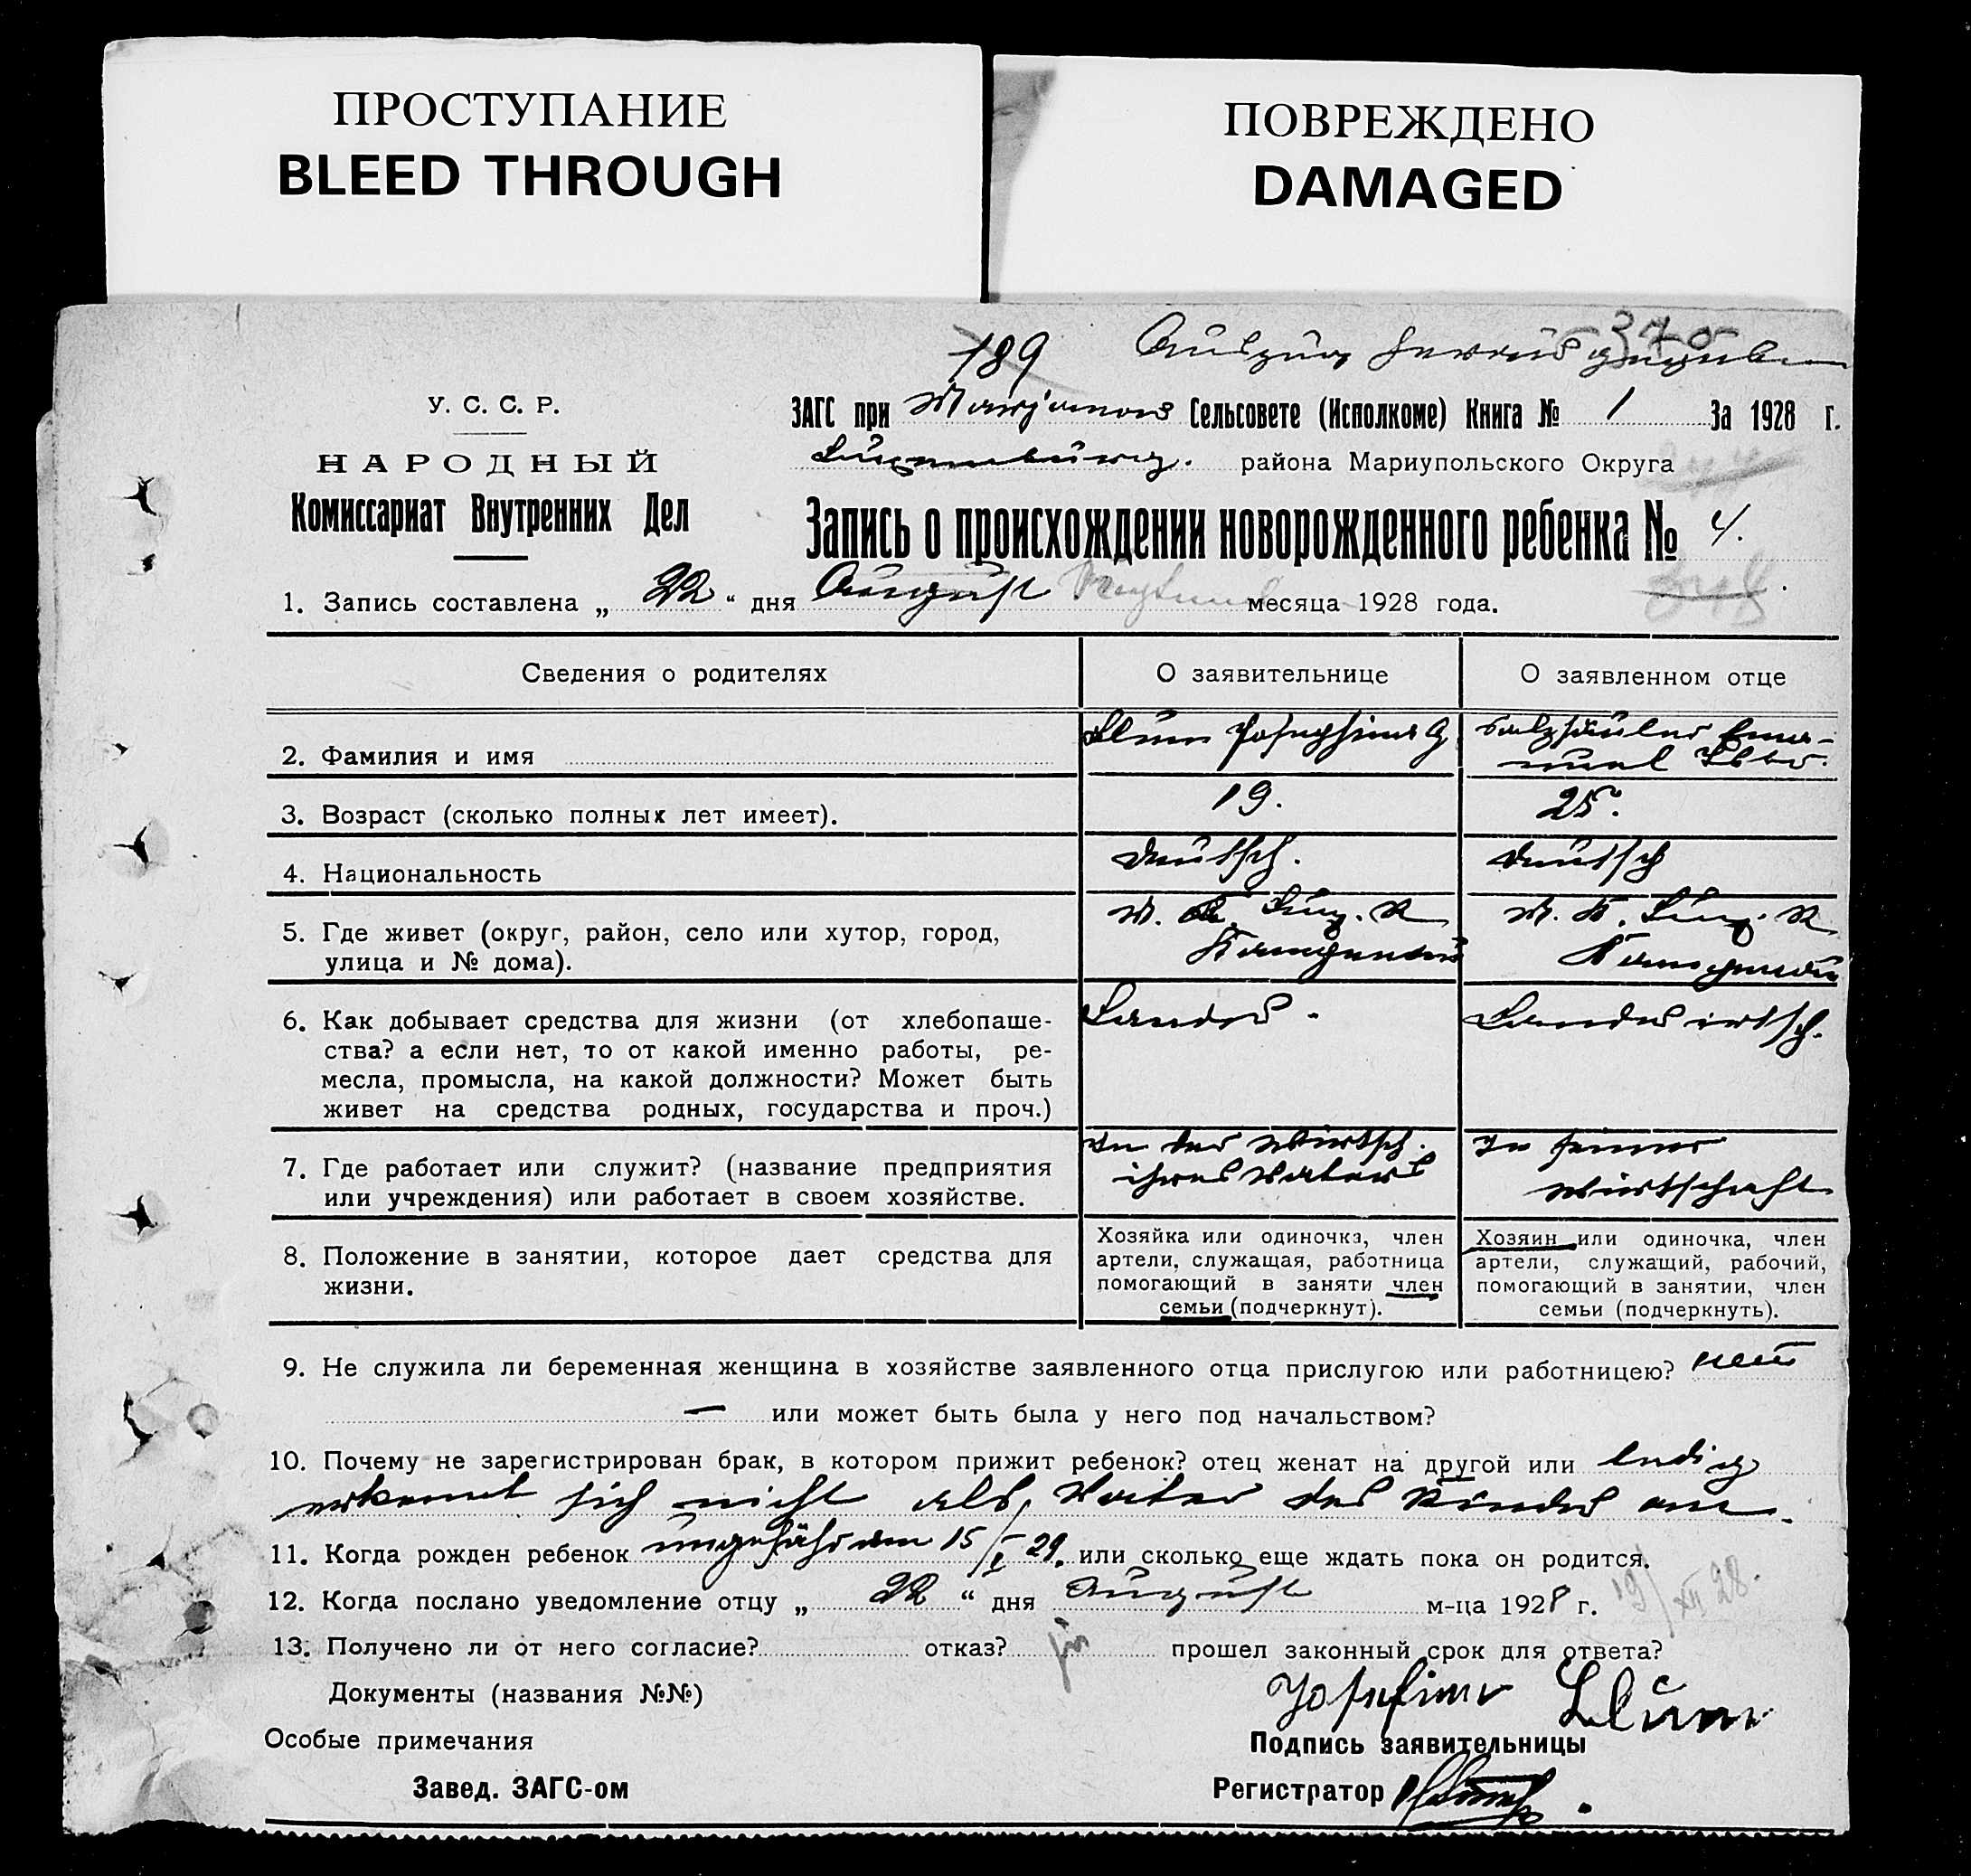 ПРОСТУПАНИЕ
BLEED THROUGH
ПОВРЕЖДЕНО
DAMAGED
370
189 Auszug herausgegeben
У. С. С. Р.
НАРОДНЫЙ
Комиссариат Внутренних Дел
ЗАГС при Marjanow Сельсовете (Исполкоме) Книга № 1 За 1928 г.
Luxemburg. района Мариупольского Округа
Запись о происхождении новорожденного ребенка № 4.
1. Запись составлена „ 22 “ дня August месяца 1928 года.
348
Сведения о родителях О заявительнице О заявленном отце
2. Фамилия и имя Blum Josephine G Salzsäuler Ema-
nuel
3. Возраст (сколько полных лет имеет). 19. 25.
4. Национальность deutsch. deutsch
5. Где живет (округ, район, село или хутор, город, M. K. Lux. R M. K. Lux. R
улица и № дома). Kampenau Kampenau
6. Как добывает средства для жизни (от хлебопаше- Landw. Landwirtsch.
ства? а если нет, то от какой именно работы, ре-
месла, промысла, на какой должности? Может быть
живет на средства родных, государства и проч.)
7. Где работает или служит? (название предприятия In der Wirtsch. In seiner
или учреждения) или работает в своем хозяйстве. ihres Vaters Wirtschaft
8. Положение в занятии, которое дает средства для
жизни.
Хозяйка или одиночка, член
артели, служащая, работница
помогающий в заняти член
семьи (подчеркнут).
Хозяин или одиночка, член
артели, служащий, рабочий,
помогающий в занятии, член
семьи (подчеркнуть).
9. Не служила ли беременная женщина в хозяйстве заявленного отца прислугою или работницею? нет
— или может быть была у него под начальством?
10. Почему не зарегистрирован брак, в котором прижит ребенок? отец женат на другой или ledig
erkennt sich nicht als Vater des Kindes an.
11. Когда рожден ребенок ungefähr am 15/I 29. или сколько еще ждать пока он родится.
12. Когда послано уведомление отцу „ 22 “ дня August м-ца 1928 г. 19/XII 28.
13. Получено ли от него согласие? отказ? ja прошел законный срок для ответа?
Документы (названия №№) Josefine Blum
Особые примечания Подпись заявительницы
Завед. ЗАГС-ом Регистратор